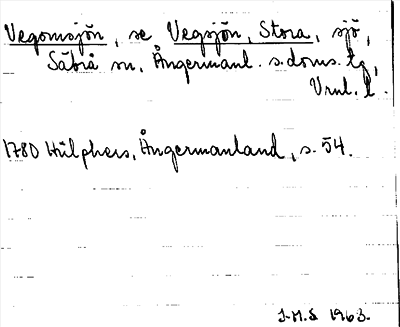 Vegomsjön, se Vegsjön, Stora, sjö,
Säbrå sn, Ångermanl. s. doms. tg,
Vrnl. l.
1780 Hülphers, Ångermanland, s. 54.
J.M.S 1963.